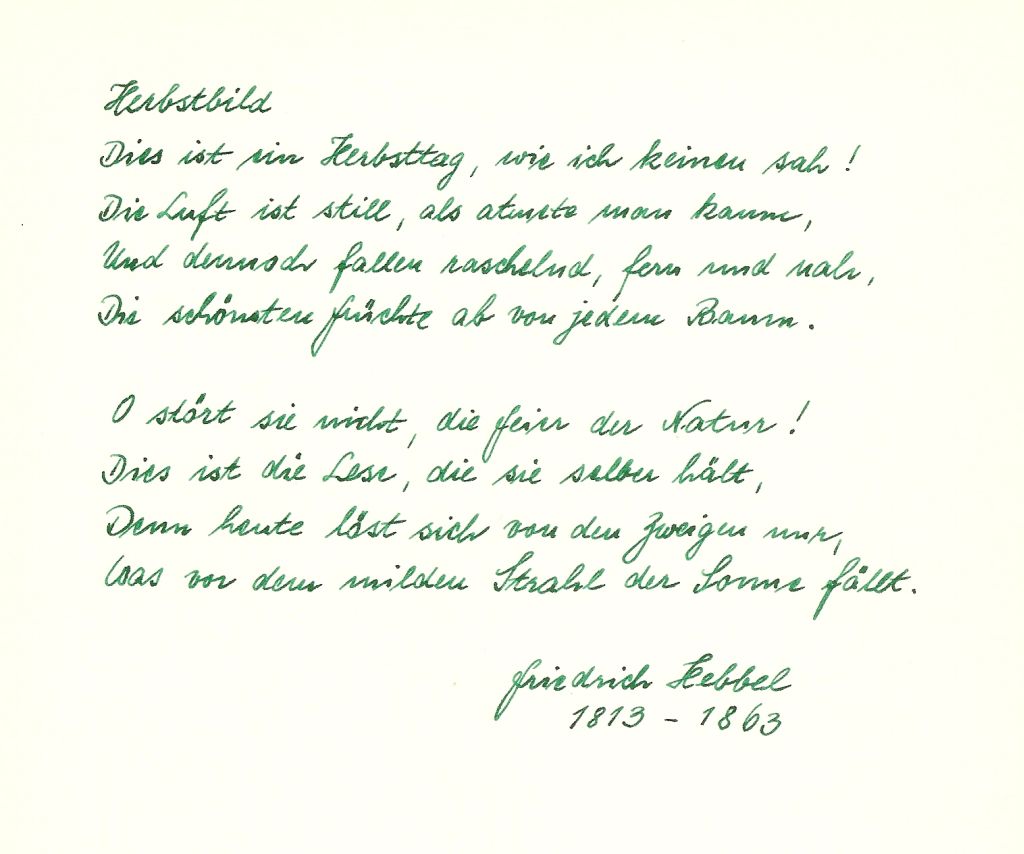 Herbstbild
Dies ist ein Herbsttag, wie ich keinen sah!
Die Luft ist still, als atmete man kaum,
Und dennoch fallen raschelnd, fern und nah,
Die schönsten Früchte ab von jedem Baum.
O stört sie nicht, die Feier der Natur!
Dies ist die Lese, die sie selber hält,
Denn heute löst sich von den Zweigen nur,
Was vor dem milden Strahl der Sonne fällt.
Friedrich Hebbel
1813 - 1863